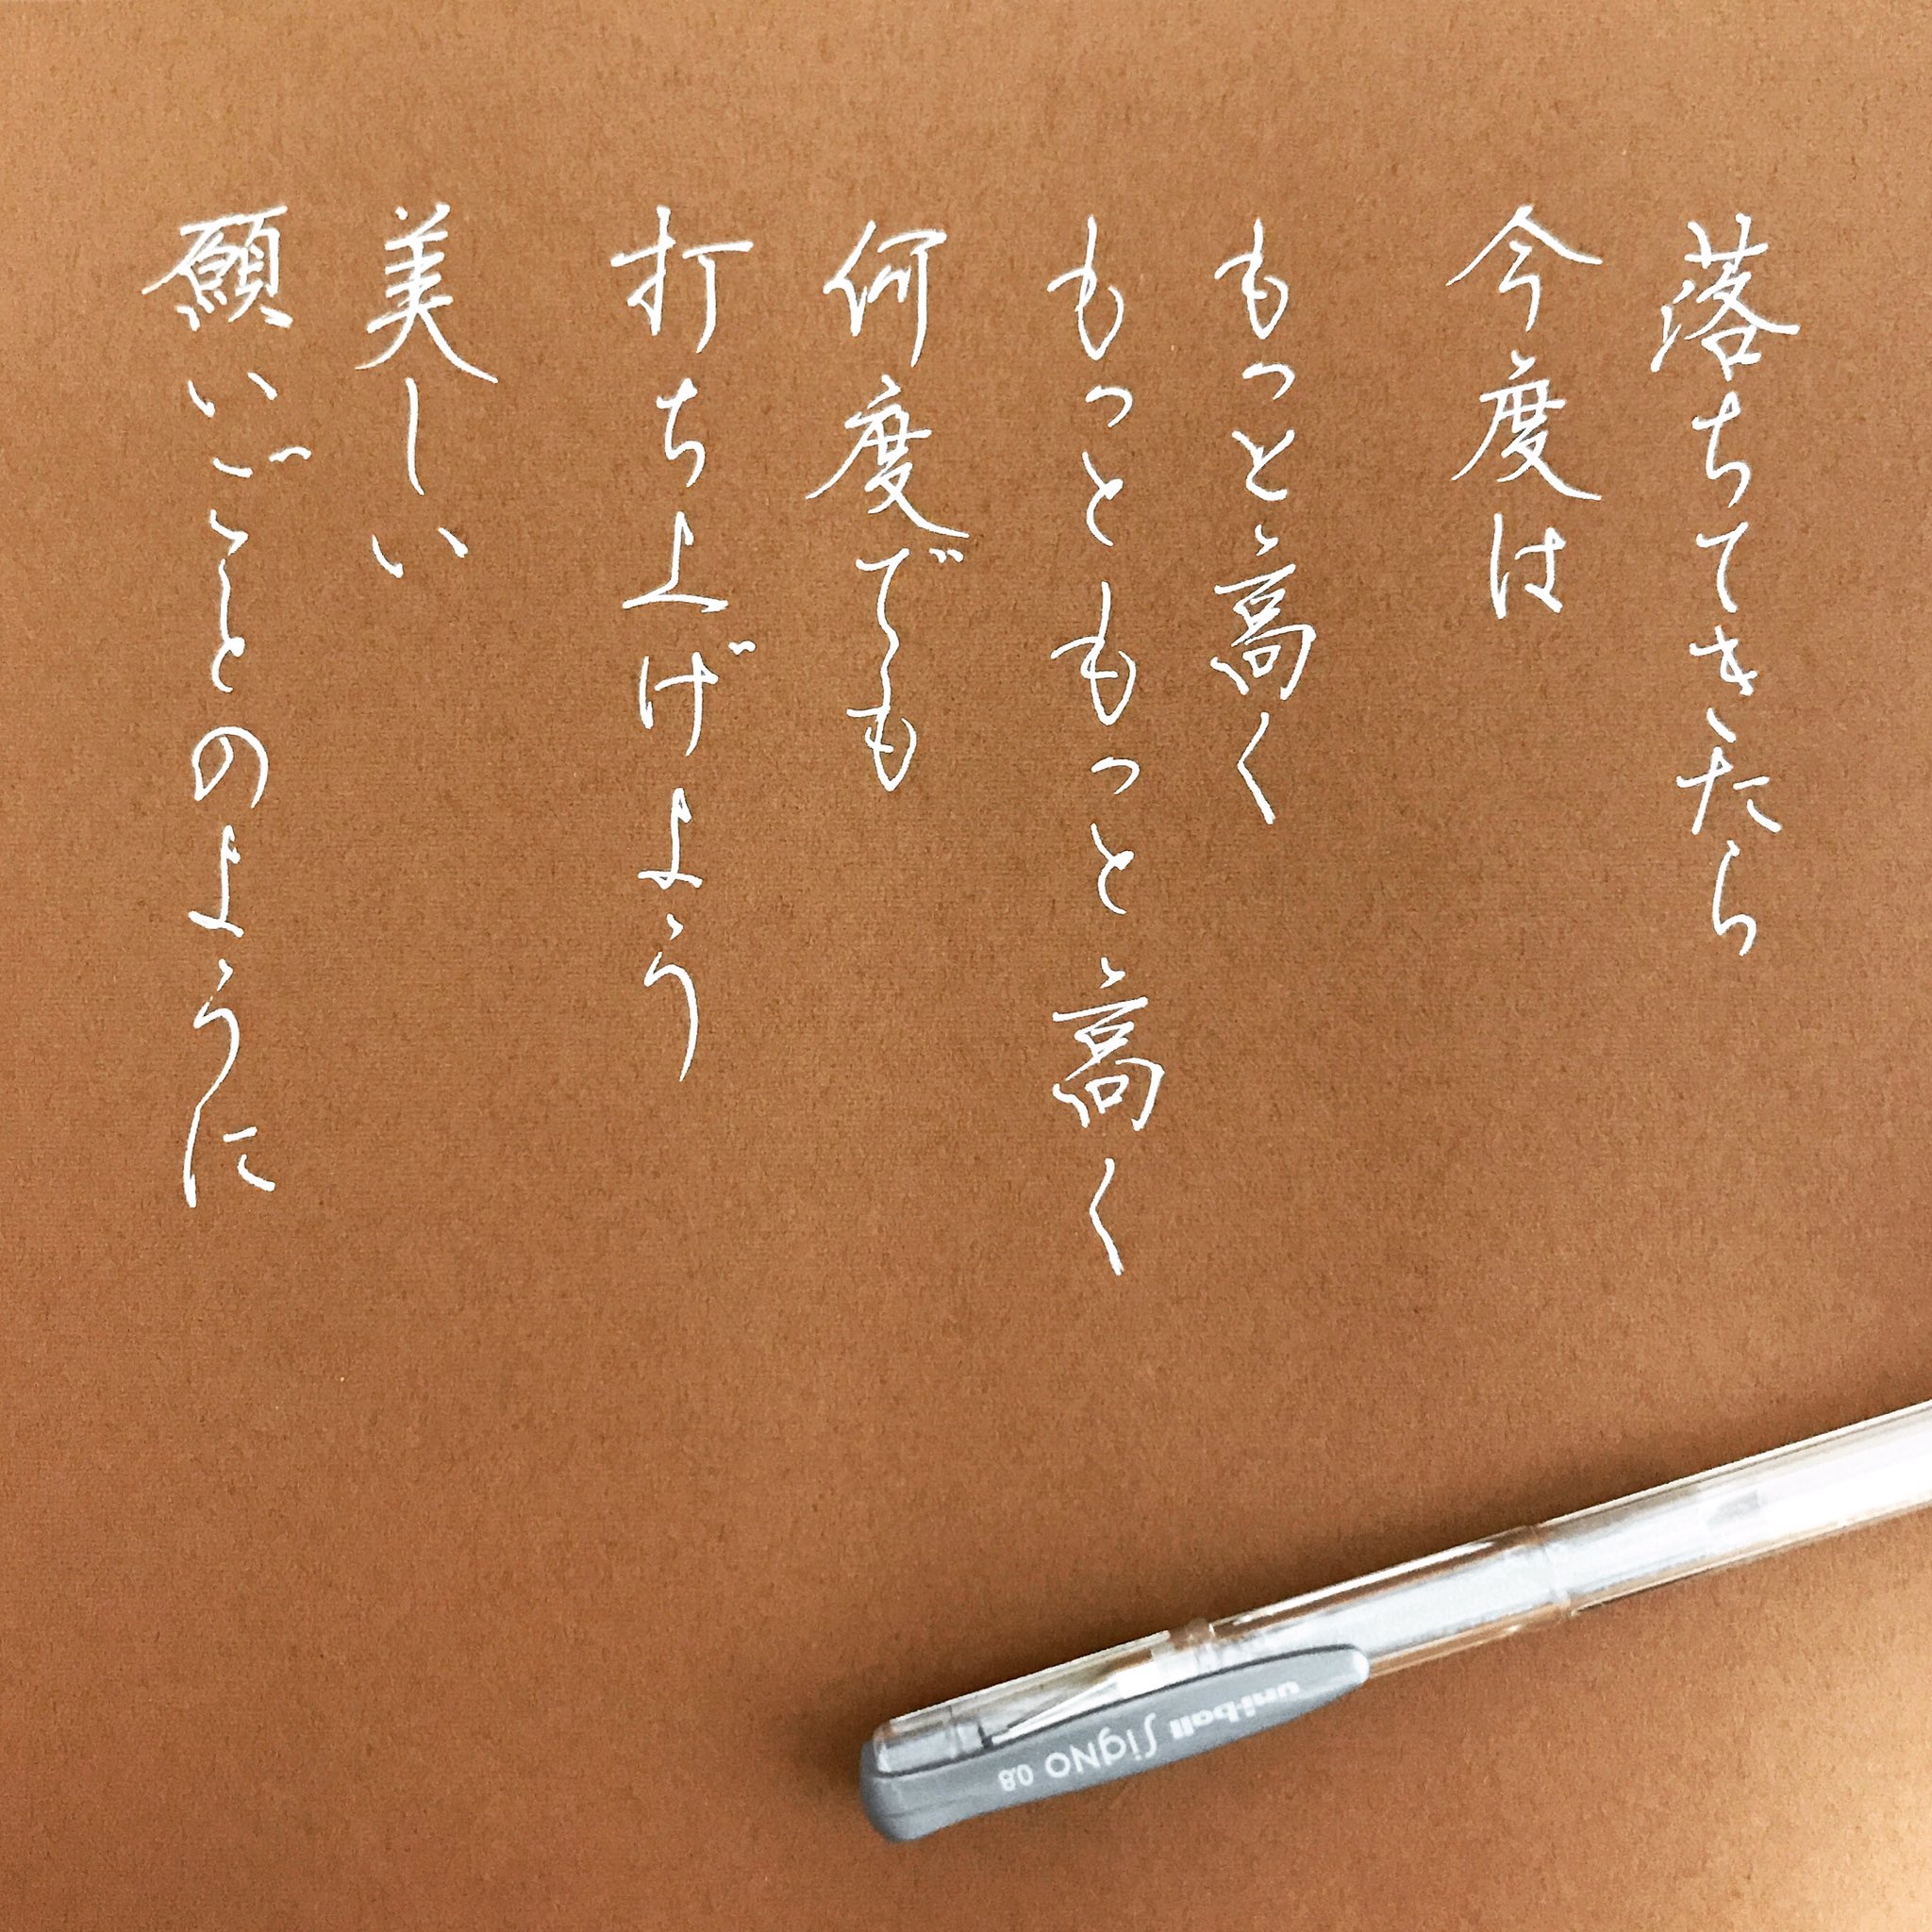 落ちてきたら
今度は
もっと高く
もっともっと高く
何度でも
打ち上げよう
美しい
願いごとのように
uni-ball SigNO 0.8